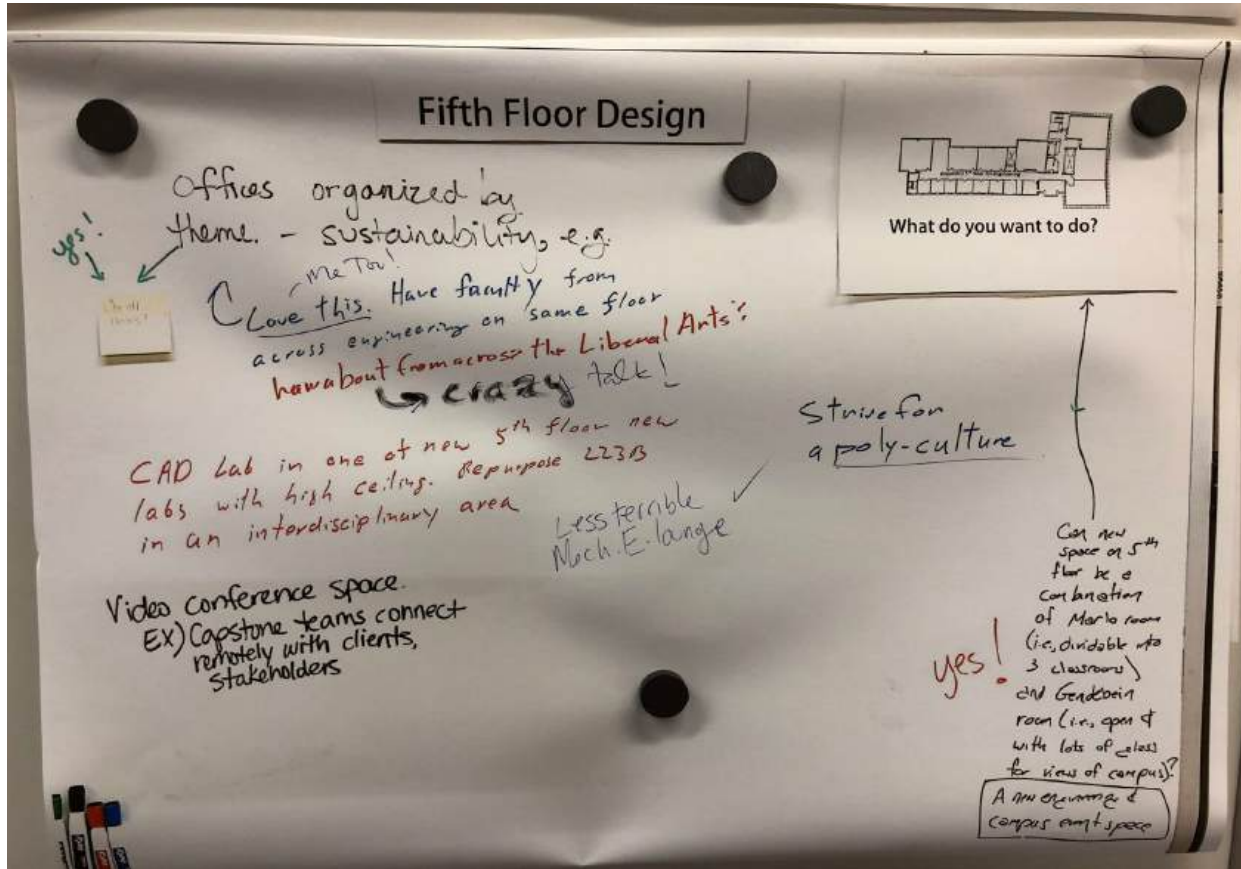 Fifth Floor Design
What do you want to do?
Offices organized by
theme. - sustainability, e.g.
yes!
Me Too!
Love this. Have faculty from
across engineering on same floor
how about from across the Liberal Arts?
crazy talk!
CAD Lab in one of new 5th floor new
labs with high ceiling. Repurpose 223B
in an interdisciplinary area
Strive for
a poly-culture
Less terrible
Mech. E. lange
Video conference space.
EX) Capstone teams connect
remotely with clients,
stakeholders
yes!
Can new
space on 5th
floor be a
combination
of Marlo room
(i.e., dividable into
3 classrooms)
and Gendebein
room (i.e., open &
with lots of glass
for views of campus)?
A new engineering &
campus event space
EXPO